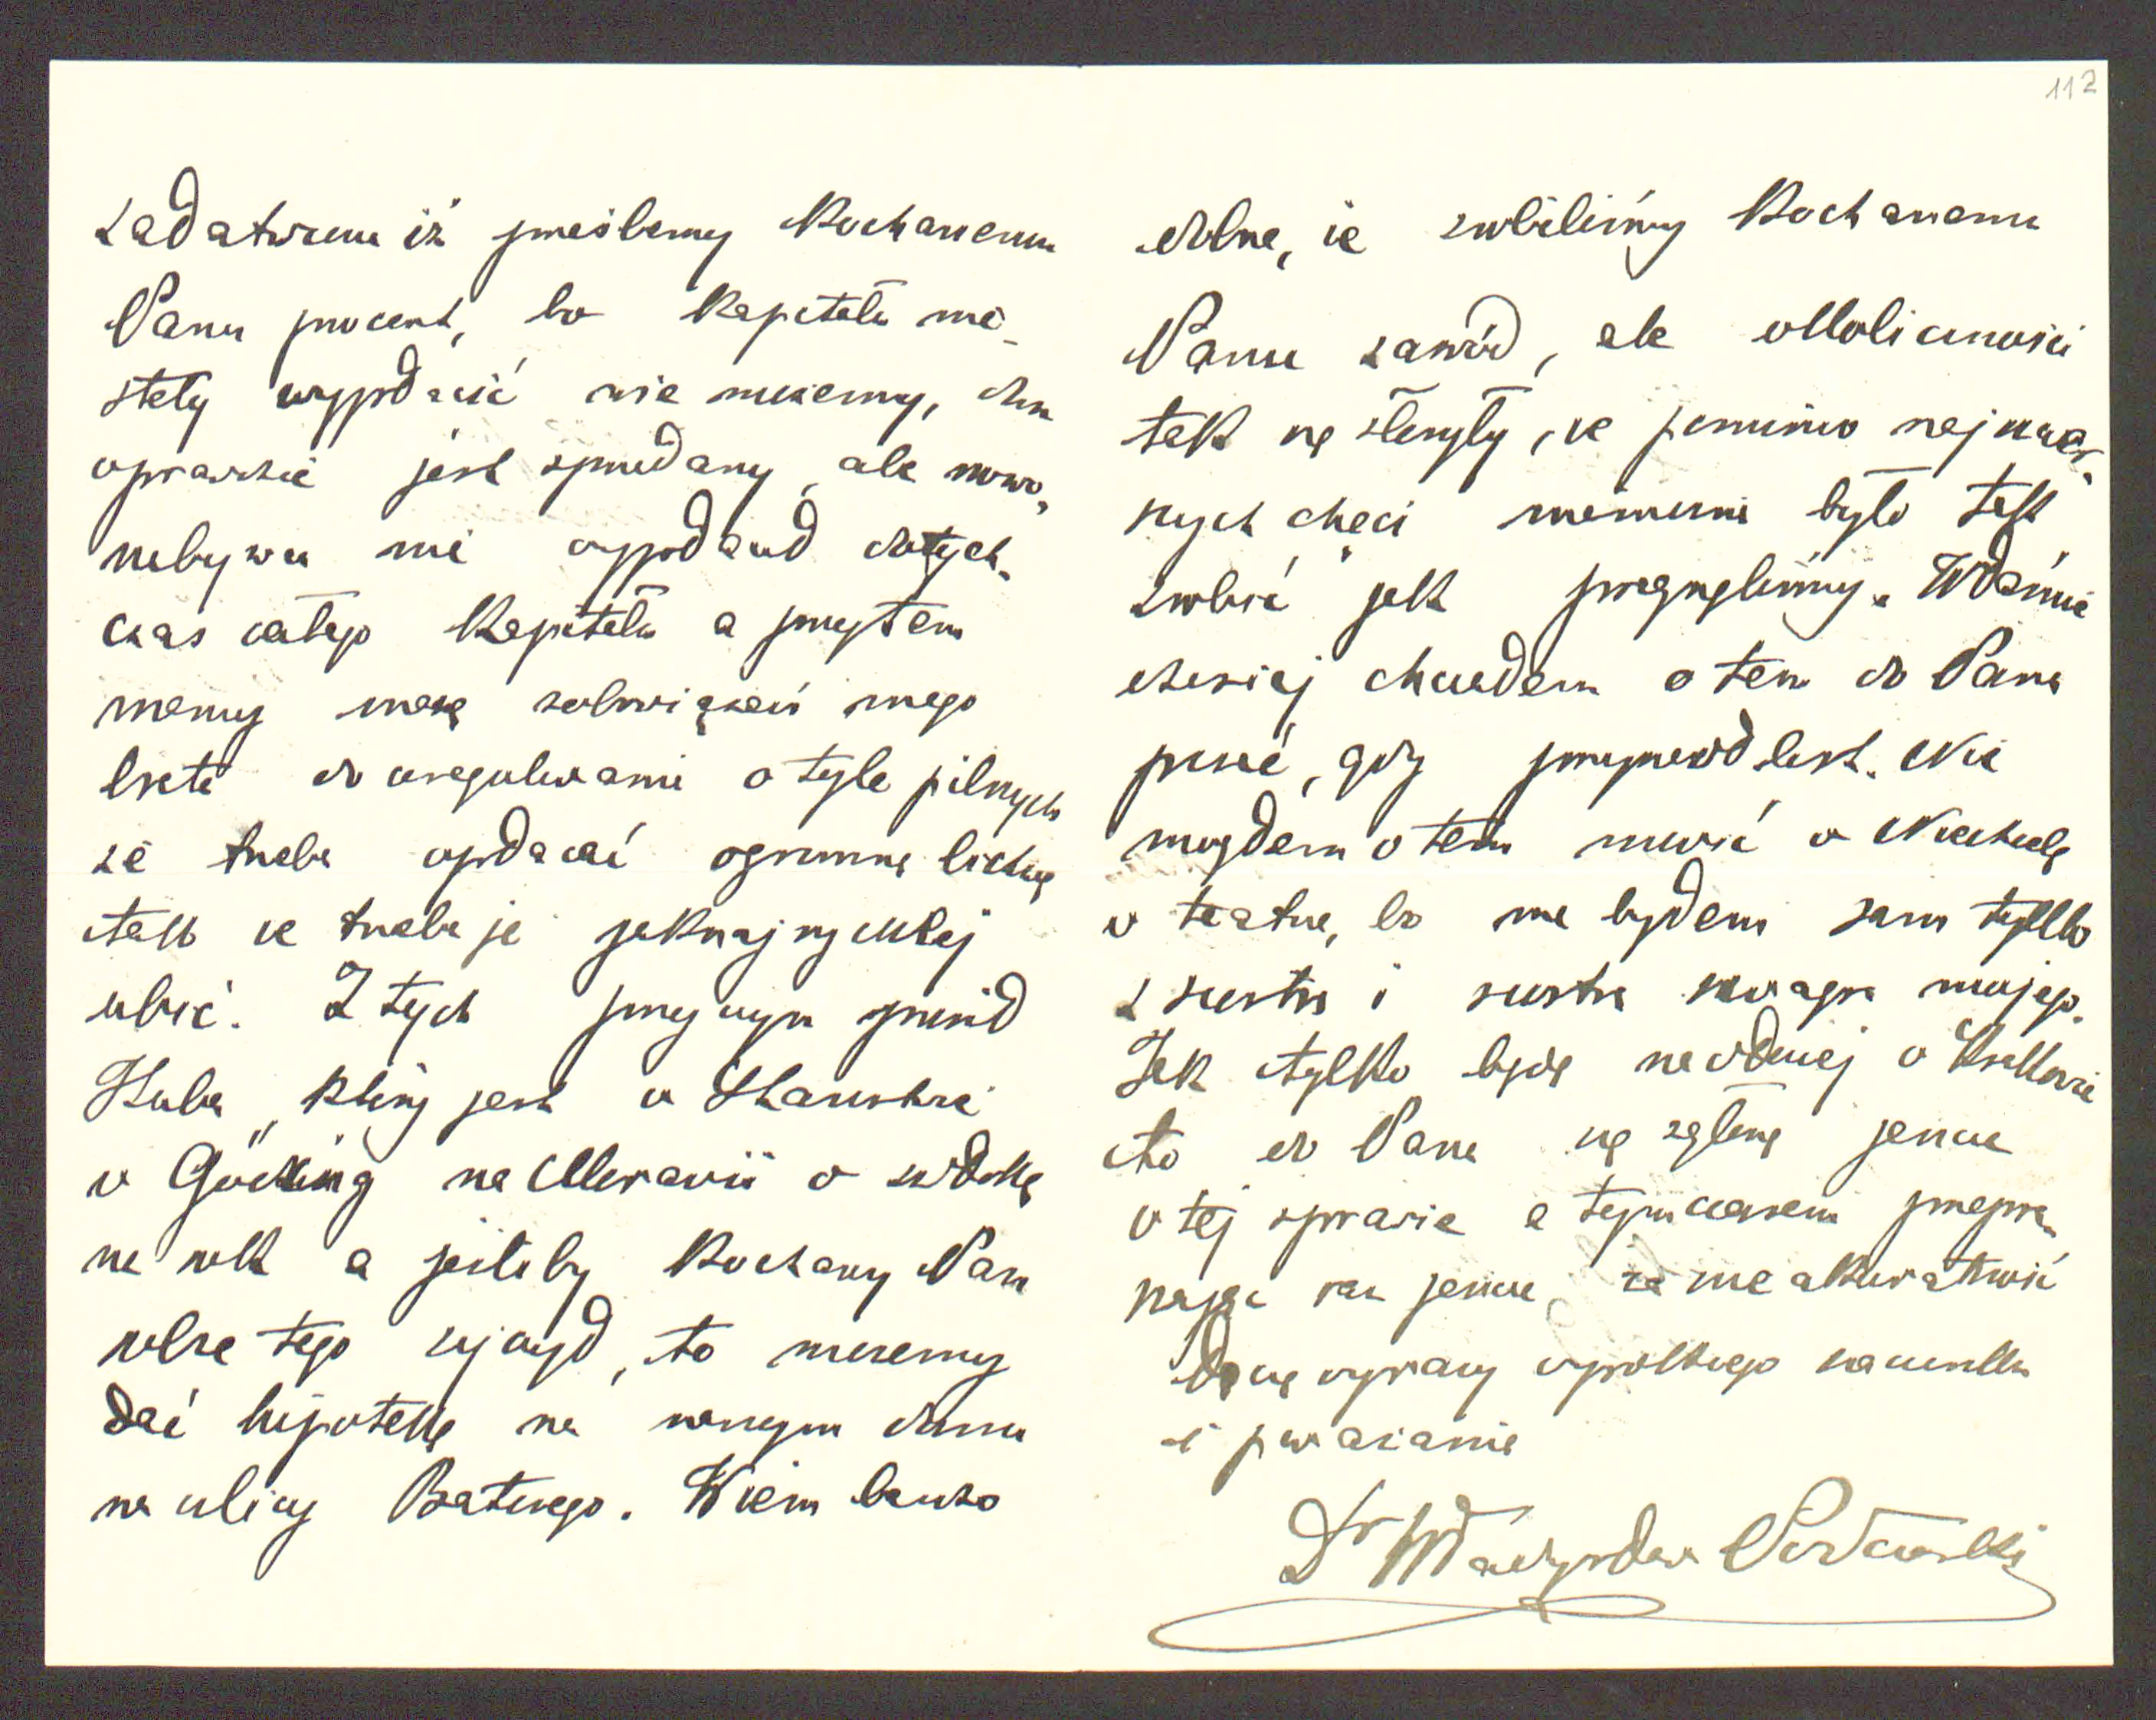 112
zadatwieniż prześlemy Kochanemu
Panu procent, bo Kapitału nie-
stety wypłacić nie możemy, dom
wprawdzie jest sprzedany, ale nowo-
nabywca nie wypłacił dotych-
czas całego Kapitału a przytem
mamy masę zobowiązań mego
brata do uregulowania o tyle pilnych
że trzeba opłacać ogromną lichwę
tak że trzeba je jaknajrychlej
ubić. Z tych przyczyn prosił
Kuba, który jest w
w Göding na Moravii o zwłokę
na rok a jeśliby Kochany Pan
sobie tego życzył, to możemy
dać hipotekę na naszym domu
na ulicy Batorego. Wiem bardzo
dobrze, że zrobiliśmy Kochanemu
Panu zawód, ale okoliczności
tak się złożyły, że pomimo najszczer-
szych chęci niemożna było tak
zrobić jak pragnęliśmy. Właśnie
dzisiaj chciałem o tem do Pana
pisać, gdy przyniósł list. Nie
mogłem o tem mówić w Niedzielę
w teatrze, bo nie byłem sam tylko
z siostrą i siostrą szwagra mojego.
Jak tylko będę następnej w Krakowie
to do Pana się zgłoszę jeszcze
w tej sprawie a tymczasem przepra-
szając raz jeszcze, za nieakuratność
łączę wyrazy wysokiego szacunku
i poważania
Dr Władysław